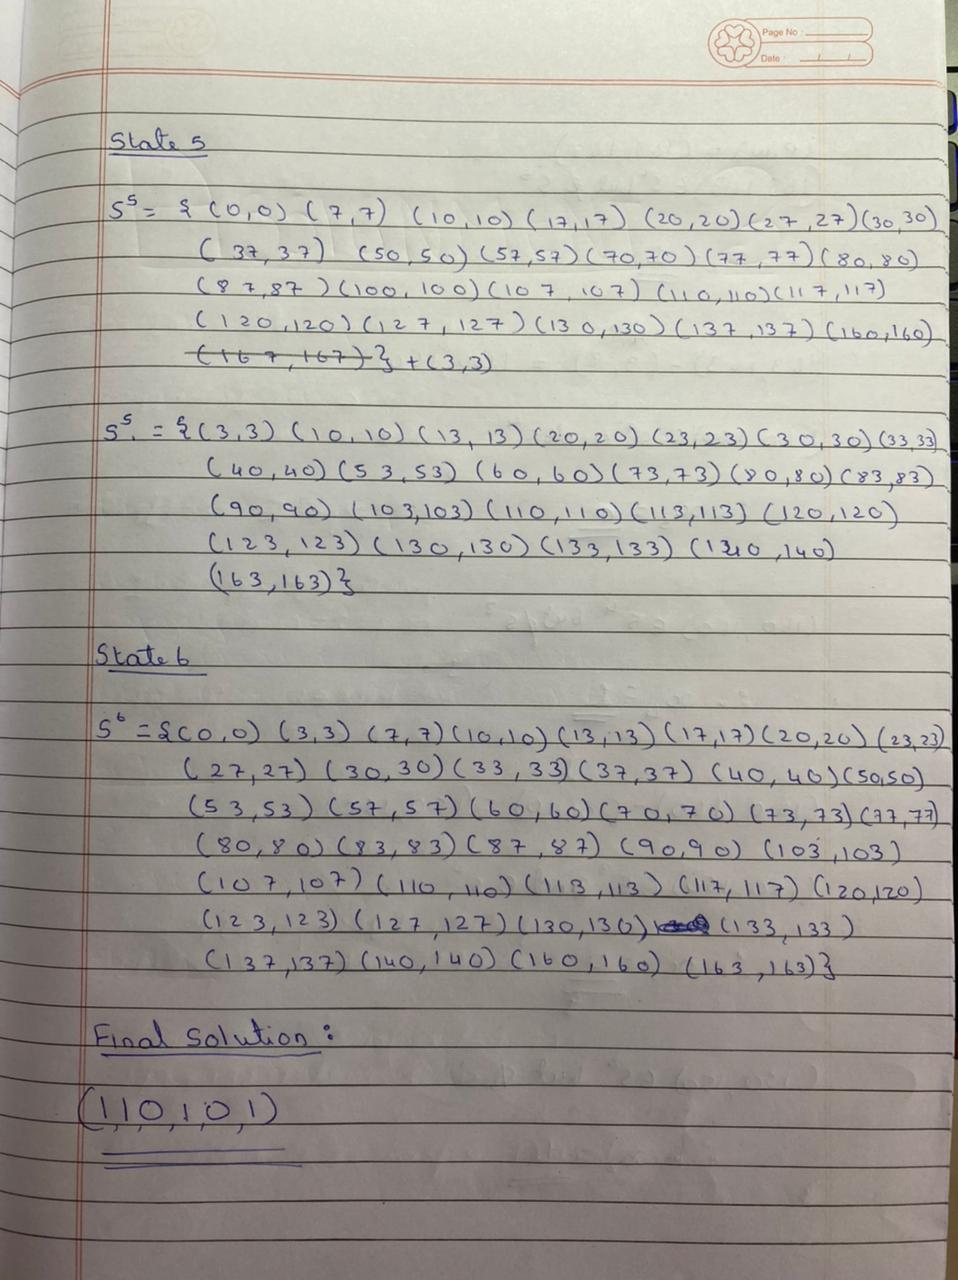 Page No :
Date :
State 5
S⁵ = { (0,0) (7,7) (10,10) (17,17) (20,20) (27,27) (30,30)
(37,37) (50,50) (57,57) (70,70) (77,77) (80,80)
(87,87) (100,100) (107,107) (110,110) (117,117)
(120,120) (127,127) (130,130) (137,137) (160,160)
(167,167)} + (3,3)
S⁵₁ = {(3,3) (10,10) (13,13) (20,20) (23,23) (30,30) (33,33)
(40,40) (53,53) (60,60) (73,73) (80,80) (83,83)
(90,90) (103,103) (110,110) (113,113) (120,120)
(123,123) (130,130) (133,133) (140,140)
(163,163)}
State 6
S⁶ = {(0,0) (3,3) (7,7) (10,10) (13,13) (17,17) (20,20) (23,23)
(27,27) (30,30) (33,33) (37,37) (40,40) (50,50)
(53,53) (57,57) (60,60) (70,70) (73,73) (77,77)
(80,80) (83,83) (87,87) (90,90) (103,103)
(107,107) (110,110) (113,113) (117,117) (120,120)
(123,123) (127,127) (130,130) (133,133)
(137,137) (140,140) (160,160) (163,163)}
Final Solution :
(1,1,0,1,0,1)